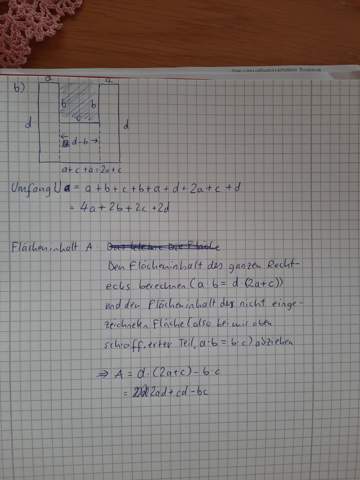 b)
a a
b b
c
d d
d-b
a+c+a=2a+c
Umfang U = a+b+c+b+a+d+2a+c+d
= 4a+2b+2c+2d
Flächeninhalt A
Den Flächeninhalt des ganzen Recht-
ecks berechnen (a·b = d·(2a+c))
und den Flächeninhalt des nicht einge-
zeichneten Fläche (also bei mir oben
schraffierter Teil, a·b = b·c) abziehen
⇒ A = d·(2a+c) - b·c
= 2ad+cd-bc